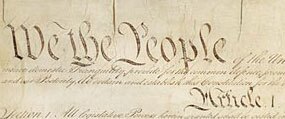 We the People of the Un
insure domestic Tranquility, provide for the common defence, prom
and our Posterity, do ordain and establish this Constitution for the
Article. I
Section. 1. All legislative Powers herein